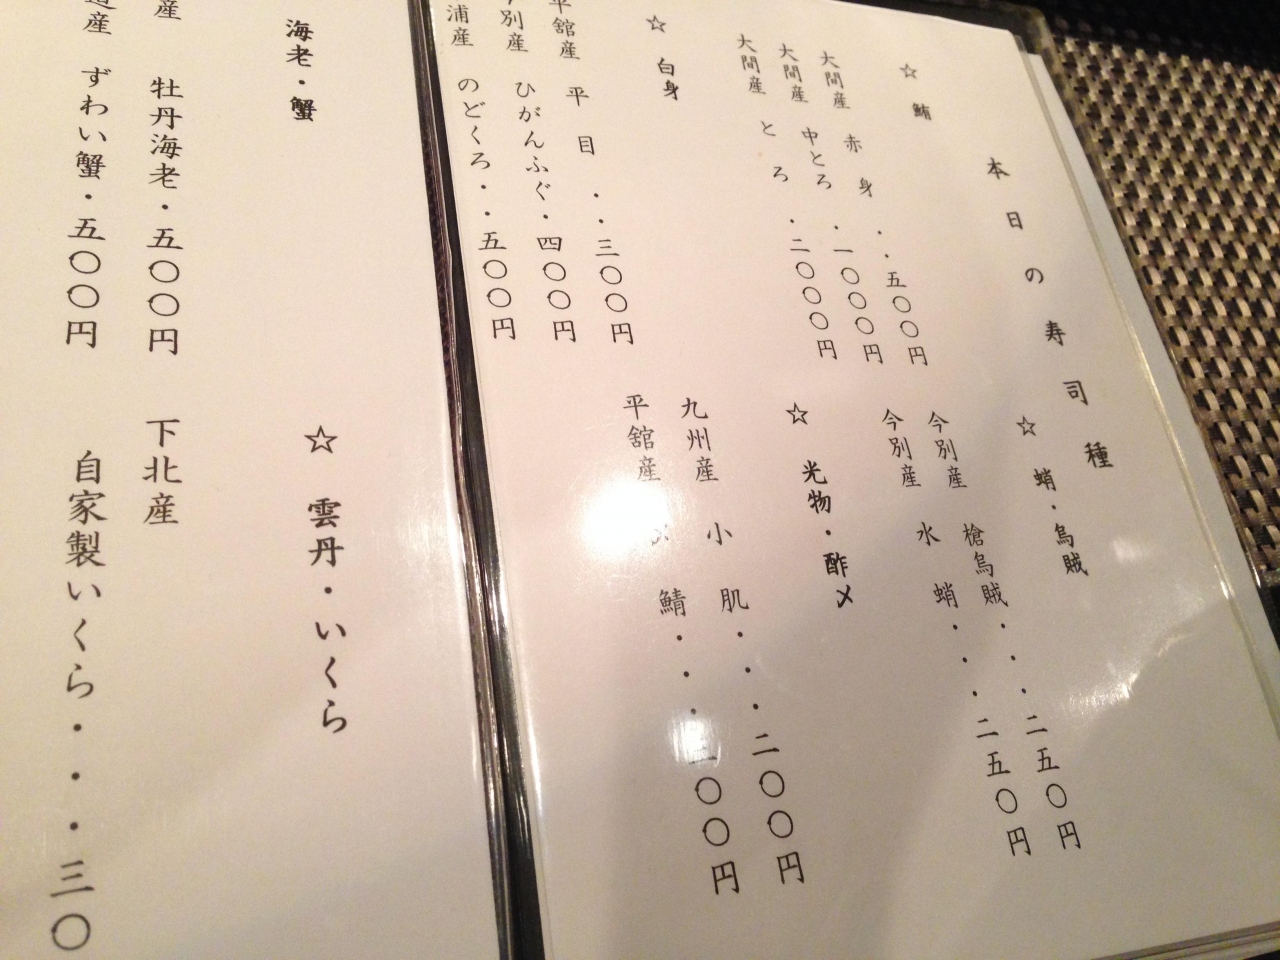 本日の寿司種
☆ 鮪
大間産 赤身・・五〇〇円
大間産 中とろ・一〇〇〇円
大間産 とろ・二〇〇〇円
☆ 白身
平舘産 平目・・三〇〇円
今別産 ひがんふぐ・四〇〇円
浦産 のどくろ・・五〇〇円
☆ 蛸・烏賊
今別産 槍烏賊・・・二五〇円
今別産 水蛸・・・二五〇円
☆ 光物・酢〆
九州産 小肌・・・二〇〇円
平舘産 〆鯖・・・〇〇円
海老・蟹
産 牡丹海老・五〇〇円
道産 ずわい蟹・五〇〇円
☆ 雲丹・いくら
下北産
自家製いくら・・・三〇